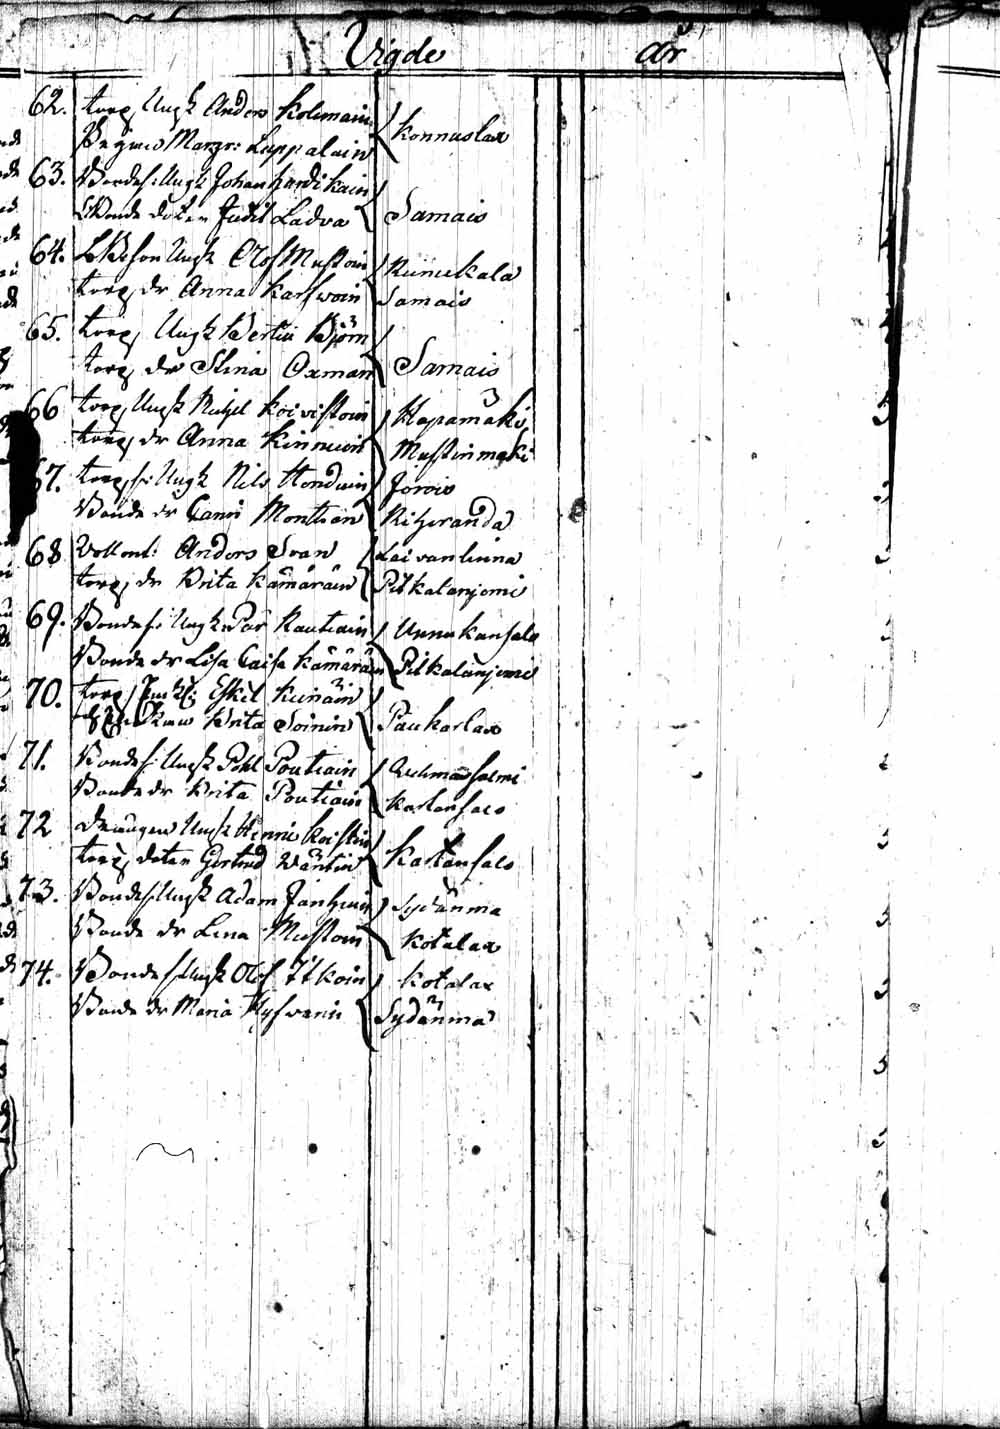 Vigde år
62. torp. Ungk Anders Kolemain
Pigan Margr: Lappalain Konnuslax
63. Bondes: Ungk Johan Pardikain
Bonde dotter Judit Ladva Samais
64. Son Ungk Olof Mustoin Kiunekala
torp. dr Anna Karfwoin Samais
65. torp. Ungk Bertin Björn
torp. dr Stina Oxman Samais
66 torp. Ungk Michel Koivistoin Hapamäki
torp. dr Anna Kinnuin Mustinmäki
67. torp. s: Ungk Nils Honduin Jorois
Bonde dr Montoin Kiheranda
68 Anders Svan Laivanlinna
torp. dr Brita Kämäräin Pitkalanjemi
69. Bondes: Ungk Pär Rautiain Unnukansalo
Bonde dr Lisa Caisa Kämäräin Pitkalänjemi
70. torp. Enkl: Eskil Keinäin
Brita Soinin Paukarlax
71. Bondes: Ungk Pohl Poutiain
Bonde dr Brita Poutiain Kartansalo
72 Drängen Ungk Henric Koistin
torp. doter Gertrud Väntin Kartansalo
73. Bondes: Ungk Adam Jänhuin Sydänma
Bonde dr Lena Mustoin Kotalax
74. Bondes: Ungk Olof Itkoin Kotalax
Bonde dr Maria Hyfvenin Sydänma